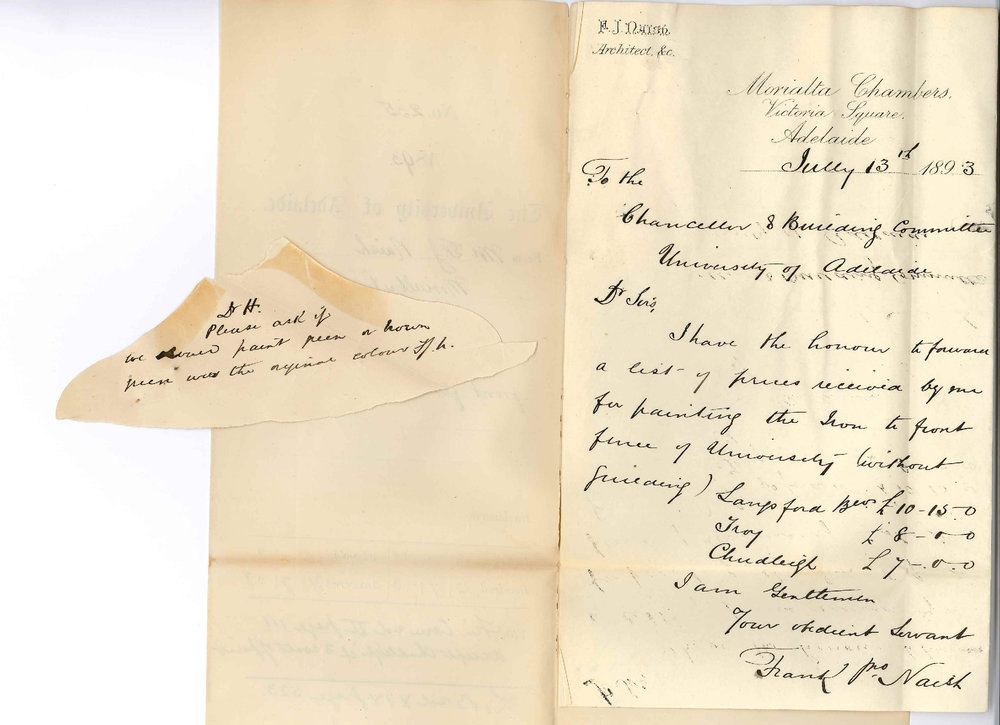 F. J. Naish
Architect, &c.
Morialta Chambers.
Victoria Square.
Adelaide
July 13th 1893
To the
Chancellor & Building Committee
University of Adelaide
Dr Sirs,
I have the honour to forward
a list of prices received by me
for painting the Iron to front
fence of University (without
guilding)
Langsford Bros £10-15-0
Troy £8-0-0
Chudleigh £7-0-0
I am Gentlemen
Your obedient Servant
Frank Naish
Dr H.
Please ask if
we paint green or brown
green was the original colour